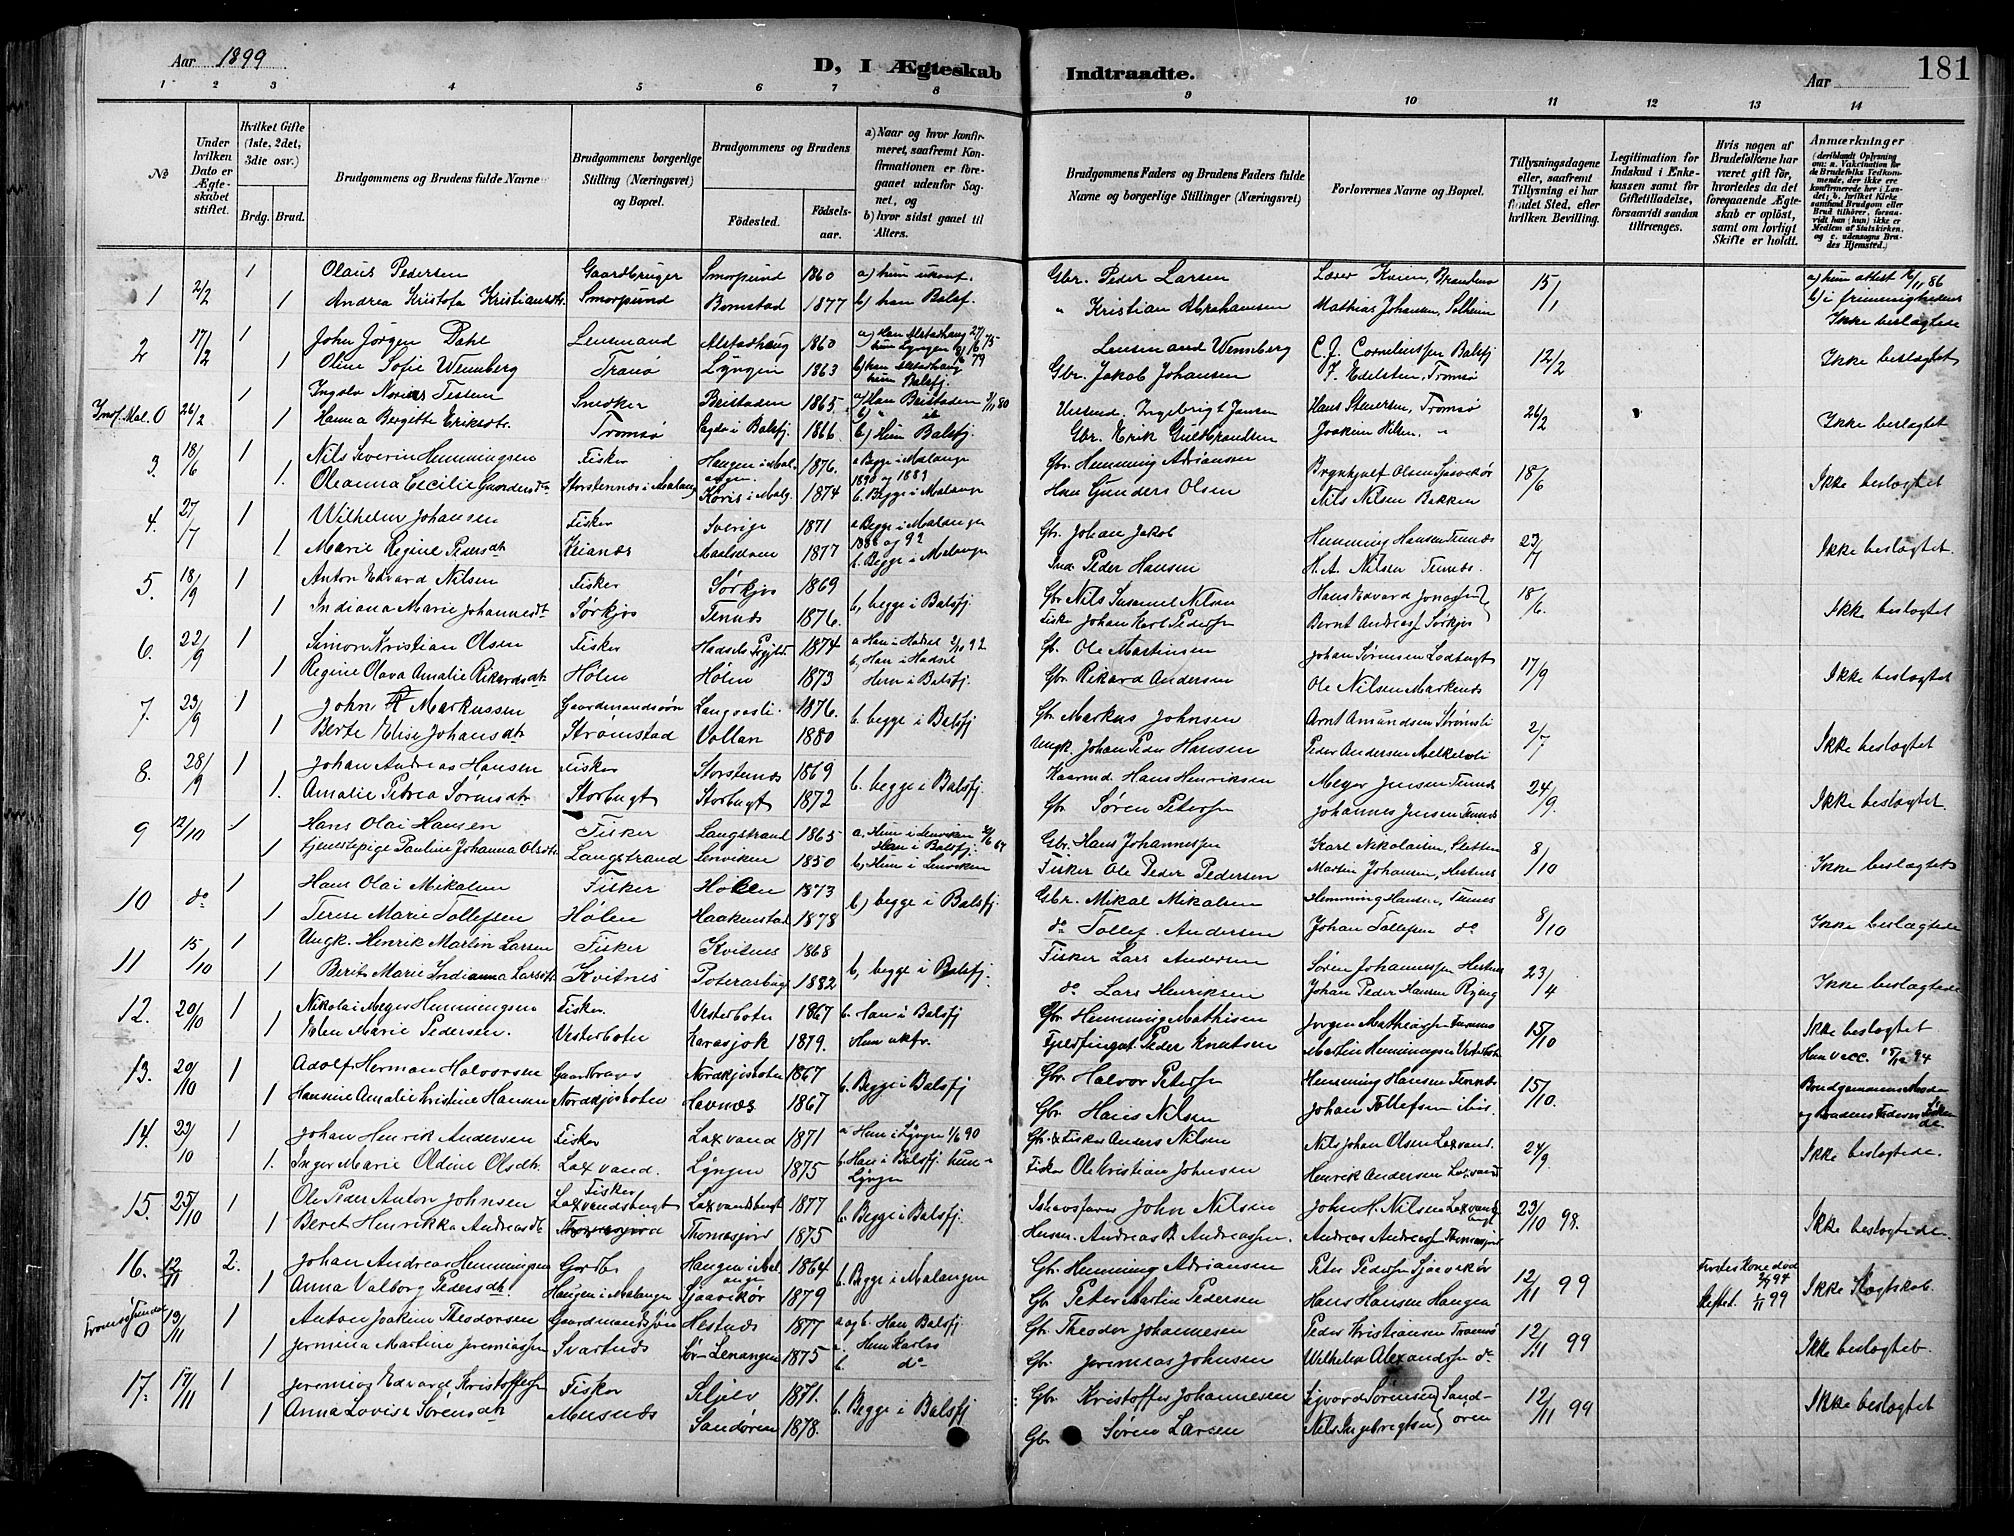 Aar 1899
D, I Ægteskab Indtraadte.
Aar
181
1 2 3 4 5 6 7 8 9 10 11 12 13 14
No
Under hvilken Dato er Ægteskabet stiftet.
Hvilket Gifte (1ste, 2det, 3die osv.)
Brdg. Brud.
Brudgommens og Brudens fulde Navne
Brudgommens borgerlige Stilling (Næringsvei) og Bopæl.
Brudgommens og Brudens
Fødested. Fødselsaar.
a) Naar og hvor konfirmeret, saafremt Konfirmationen er foregaaet udenfor Sognet, og
b) hvor sidst gaaet til Alters.
Brudgommens Faders og Brudens Faders fulde Navne og borgerlige Stillinger (Næringsvei)
Forlovernes Navne og Bopæl.
Tillysningsdagene eller, saafremt Tillysning ei har fundet Sted, efter hvilken Bevilling.
Legitimation for Indskud i Enkekassen samt for Giftetilladelse, forsaavidt saadan tiltrænges.
Hvis nogen af Brudefolkene har været gift før, hvorledes da det foregaaende Ægteskab er opløst, samt om lovligt Skifte er holdt.
Anmærkninger
(deriblandt Oplysning om: a. Vakcination for de Brudefolks Vedkommende, der ikke ere konfirmerede her i Landet; b. hvilket Kirkesamfund Brudgom eller Brud tilhører, forsaavidt han (hun) ikke er Medlem af Statskirken, og c. udensogns Brudes Hjemsted.)
1 2/2 1 Olaus Pedersen Gaardbruger 1860 a) hun ukonf. Gbr. Peder Larsen 15/1
1 Andrea Kristofa Kristiansdtr. Bomstad 1877 b) han Balsf. " Kristian Abrahamsen Mathias Johansen, Solheim
Ikke beslægtede
2 17/2 1 John Jørgen Dahl Lensmand Alstadhaug 1860 a) Han Alstadhaug 75 Lensmand Wennberg C. J. Corneliussen Balsfj 12/2 Ikke beslægtet
1 Oline Sofie Wennberg Tranø Lyngen 1863 hun Lyngen 79 b) han Alstadhaug hun Balsfj. Gbr. Jakob Johansen J. Edelsten, Tromsø
Mal. 0 26/2 Snedker Beistaden 1865 a) Han Beistaden 80 Ingebrigt Jensen Hans Stenersen, Tromsø 26/2 Ikke beslægtet
Hanna Bergitte Eriksdtr. Tromsø i Balsfj. 1866 b) Hun Balsfj. Gbr. Erik Guldbrandsen Joakim Nilsen, "
3. 18/6 1 Nils Severin Hemmingsen Fisker Haugen i Malangen 1876. a Begge i Malangen 1890 og 1889 Gbr. Hemming Adriansen Brynhjulf Olsen Sjaavikør 18/6 Ikke beslægtet
1. Oleanna Cecilie Storstennes i Malang i Malg. 1874 b. Begge i Malange Gunders Olsen Nils Nilsen Bakken
4. 27/7 1 Wilhelm Johansen Fisker Sverige 1871 a Begge i Malangen 1886 og 92 Gbr. Johan Jakob Hemming Hansen Tennes 23/7 Ikke beslægtet.
1. Marie Regine Pedersdtr. 1877 b. Begge i Malange Peder Hansen H. A. Nilsen Tennes.
5. 18/9 1 Anton Edvard Nilsen Fisker Sørkjos 1869 b, begge i Balsfj. Gbr. Nils Samuel Nilsen Hans Edvard 18/6. Ikke beslægtet
1 Indiana Marie Johannesdtr Sørkjos Tennes 1876. Fisker Johan Karl Peders. Bernt Andreas. Sørkjos
6. 22/9 1 Simon Kristian Olsen Fisker Hadsels Prgjld 1874 a Han i Hadsel 92 Gb. Ole Martinsen Johan Sørensen Lodbugt 17/9 Ikke beslægtet
1 Regine Olava Amalie Rikardsdtr Hølen Hølen 1873 b, Han i Hadsel Hun i Balsfj. Gbr. Rikard Andersen Ole Nilsen Markenes
7. 23/9 1 John Markussen Gaardmandssøn Langaasli. 1876. b. begge i Balsfj Gbr. Markus Johnsen Arnt Amundsen 2/7 Ikke beslægtet
1 Berte Elise Johansdtr Strømstad Vollan 1880 Ungk. Johan Peder Hansen Peder Andersen Melkelvli
8. 28/9 1 Johan Andreas Hansen Fisker Storstenes 1869 b. begge i Balsfj. Hans Henriksen Meyer Jensen Tennes 24/9. Ikke beslægtet.
1. Amalie Petrea Sørensdtr Storbugt Storbugt 1872 Gbr. Søren Peters. Johannes Jensen Tennes
9 12/10 1 Hans Olai Hansen Fisker Langstrand 1865 a, Hun i Lenviken 64 Han i Balsfj. Gbr. Hans Johannessen Karl Nikolaisen, Sletten 8/10 Ikke beslægtet
1 Tjenestepige Pauline Johanna Olsdtr Langstrand Lenviken 1850 b, Hun i Lenviken Fisker Ole Peder Pedersen Martin Johansen, Hestnes
10 do 1 Hans Olai Mikalsen Fisker Hølen 1873 b) begge i Balsfj. Gbr. Mikal Mikalsen Hemming Hansen, Tennes 8/10 Ikke beslægtede
1 Terese Marie Tollefsen Hølen Haakenstad 1878 do Tollef Andersen Johan Tollefsen do
11 15/10 1 Ungk. Henrik Martin Larsen Fisker Kvitnes 1868 b, begge i Balsfj. Fisker Lars Andersen Søren Johannessen Hestnes 23/4 Ikke beslægtede
1 Berit Marie Indianna Larsdtr Kvitnes 1882 do Lars Henriksen Johan Peder Hansen
12. 20/10 1 Nikolai Meyer Hemmingsen Fisker. Vesterboten 1867 b. Han i Balsfj Gbr. Hemming Mathisen Jørgen Mathiassen Tennes 15/10 Ikke beslægtet
1 Elen Marie Pedersen. Vesterboten Karasjok 1879. Hun ukfr. Fjeldfingat. Peder Knutsen Martin Hemmingsen Vesterbotn Hun vacc. 94
13. 20/10 1 Adolf Herman Halvorsen Gaardbruger Nordkjosboten 1867 b. Begge i Balsfj Gbr. Halvor Peters. Hemming Hansen Tennes 15/10. Brudgommens Moder og Brudens Fader
1 Hansine Amalie Kristine Hansen Nordkjosboten Havnæs 1867 Gbr. Hans Nilsen Johan Tollefsen ibid.
14. 23/10 1 Johan Henrik Andersen Fisker Laxvand 1871 a Hun i Lyngn 1/6 90 Gbr. & Fisker Anders Nilsen Nils Johan Olsen Laxvand. 24/9. Ikke beslægtede.
1. Inger Marie Oldine Olsdtr. Laxvand. Lyngen 1875 b. Han i Balsfj. hun Lyngn Fisker Ole Kristian Johnsen Henrik Andersen Laxvand
15. 25/10 1 Ole Peder Anton Johnsen Fisker Laxvandsbugt Laxvandsbugt 1877 b. Begge i Balsfj. Ishavsfarer John Nilsen John H. Nilsen Laxvandsbugt 23/10 98. Ikke beslægtede.
1 Beret Henrikka Andreasdtr Thomasjord 1875 Husm. Andreas B. Andreassen. Andreas Andreas. Thomasjord
16. 12/11 2. Johan Andreas Hemmingsen Gardbr. Haugen i Malangen 1864 b. Begge i Malangen Gbr. Hemming Adriansen Peter Peders. Sjaavikør 12/11 99 Første Kone død 94 Skiftet. 1/11 99 Ikke Slægtskab.
1 Anna Valborg Pedersdtr. Haugen i Malangen Sjaavikør 1879 Gbr Peter Martin Pedersen Hans Hansen Haugen
Tromsøsundet 0 13/11 1 Anton Joakim Theodorsen Gaardmandssøn Hestnæs 1877 a og b. Han Balsfj. Gbr. Theodor Johannesen Peder Kristiansen Tromsø 12/11 99 Ikke beslægtede.
1 Jermina Martine Jeremiassen Svartnæs Sør-Lenangen 1875 a. Hun Karlsø b. do Gbr. Jeremias Johnsen Wilhelm Alexanders. do
17. 17/11 1 Jeremias Edvard Kristoffers. Fisker Seljelv 1871. b. Begge i Balsfj Gbr. Kristoffer Johannesen Sigvard Sørensen Sandøren 12/11 99 Ikke beslægtet
1 Anna Lovise Sørensdtr Mesnæs Sandøren 1878. Gbr Søren Larsen Nils Ingebrigtsen